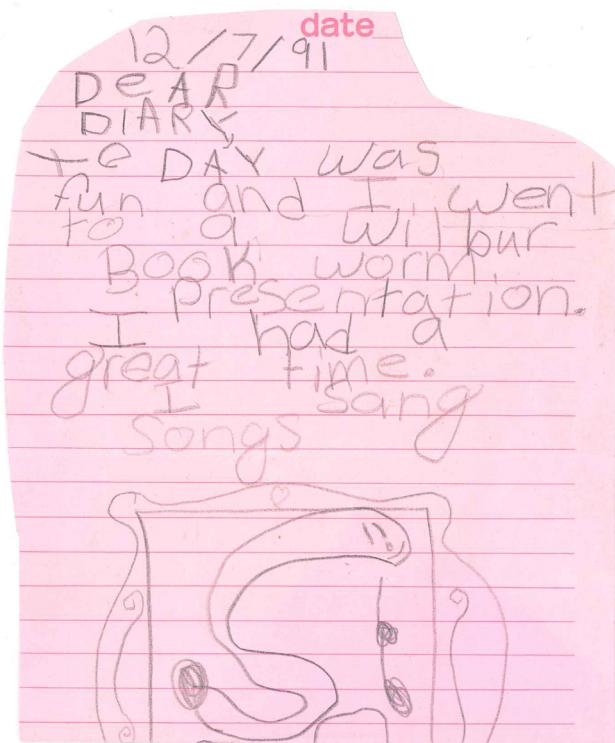 date
12/7/91
DeAR
DIARY,
te DAY was
fun and I went
to a Wilbur
Book worm
presentation.
I had a
great time.
I sang
songs